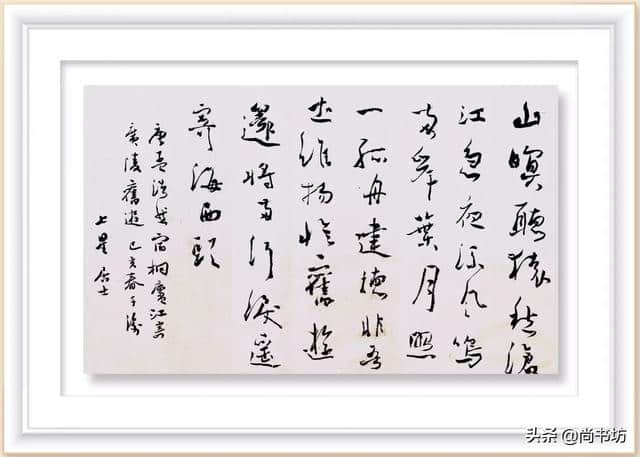 山暝聽猿愁滄
江急夜流風鳴
兩岸葉月照
一孤舟建德非吾
土維揚憶舊遊
還將兩行淚遙
寄海西頭
唐孟浩然宿桐廬江寄
廣陵舊遊 己亥春子
上星居士
头条 @尚书坊